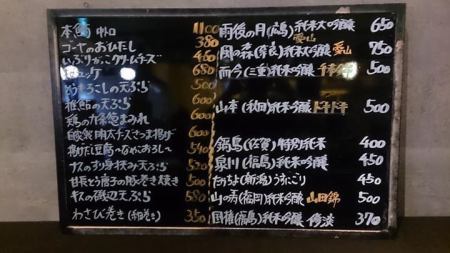 本鮪 中トロ 1100
ゴーヤのおひたし 380
いぶりがっこクリームチーズ 460
680
とうもろこしの天ぷら 500
稚鮎の天ぷら 600
鶏の九条葱まみれ 600
自家製 明太チーズさつま揚げ 600
揚げだし豆腐のなめこおろし 540
ナスのすり身挟み天ぷら 520
甘長とう唐子の豚巻き焼き 500
キスの磯辺天ぷら 580
わさび巻き (細巻き) 350
雨後の月 (広島) 純米大吟醸 愛山 650
(奈良) 純米大吟醸 愛山 750
而今 (三重) 純米吟醸 千本錦 500
山本 (秋田) 純米吟醸 ドキドキ 500
鍋島 (佐賀) 特別純米 400
泉川 (福島) 純米吟醸 450
たかちよ (新潟) うすにごり 450
山の壽 (福岡) 純米吟醸 山田錦 500
国権 (福島) 純米吟醸 370